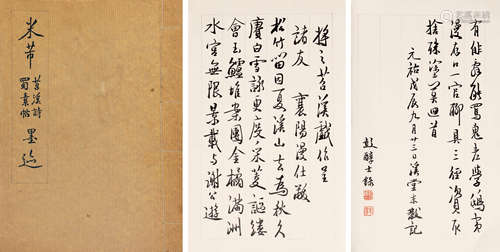 米芾 苕溪詩
蜀素帖 墨迹
將之苕溪戲作呈
諸友 襄陽漫仕黻
松竹留因夏溪山去為秋久
賡白雪詠更度采菱謳縷
會玉鱸堆案團金橘滿洲
水宮無限景載與謝公遊
有俳辭能罵鬼老學鴟夷
漫存口一官聊具三徑資取
捨殊塗莫迴首
元祐戊辰九月廿三日溪堂米黻記
彭醇士錄